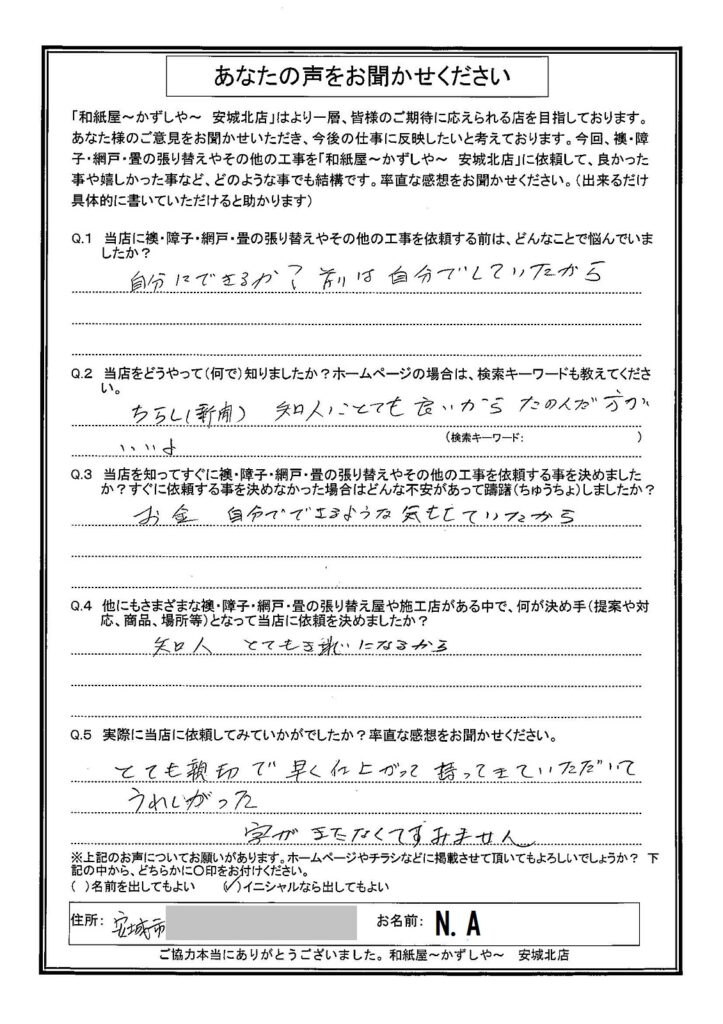 あなたの声をお聞かせください
「和紙屋～かずしや～　安城北店」はより一層、皆様のご期待に応えられる店を目指しております。
あなた様のご意見をお聞かせいただき、今後の仕事に反映したいと考えております。今回、襖・障
子・網戸・畳の張り替えやその他の工事を「和紙屋～かずしや～　安城北店」に依頼して、良かった
事や嬉しかった事など、どのような事でも結構です。率直な感想をお聞かせください。（出来るだけ
具体的に書いていただけると助かります）
Q.1　当店に襖・障子・網戸・畳の張り替えやその他の工事を依頼する前は、どんなことで悩んでいま
したか？
自分にできるか？　前は自分でしていたから
Q.2　当店をどうやって（何で）知りましたか？ホームページの場合は、検索キーワードも教えてくださ
い。
ちらし（新聞）　知人にとても良いから　たのんだ方が
（検索キーワード：　　　　　　　　）
いいよ
Q.3　当店を知ってすぐに襖・障子・網戸・畳の張り替えやその他の工事を依頼する事を決めました
か？すぐに依頼する事を決めなかった場合はどんな不安があって躊躇（ちゅうちょ）しましたか？
お金　自分でできるような気もしていたから
Q.4　他にもさまざまな襖・障子・網戸・畳の張り替え屋や施工店がある中で、何が決め手（提案や対
応、商品、場所等）となって当店に依頼を決めましたか？
知人　とてもき麗いになるから
Q.5　実際に当店に依頼してみていかがでしたか？率直な感想をお聞かせください。
とても親切で早く仕上がって持ってきていただいて
うれしかった
字がきたなくてすみません
※上記のお声についてお願いがあります。ホームページやチラシなどに掲載させて頂いてもよろしいでしょうか？　下
記の中から、どちらかに〇印をお付けください。
（　）名前を出してもよい　　（✓）イニシャルなら出してもよい
住所：安城市　　お名前：N.A
ご協力本当にありがとうございました。和紙屋～かずしや～　安城北店